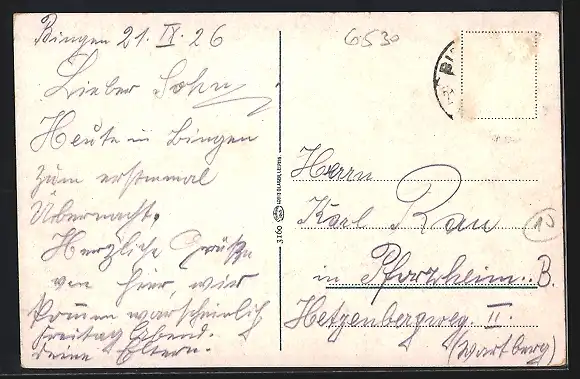 Bingen 21. IX. 26
Lieber Sohn
Heute in Bingen
zum erstmmal
Übernacht.
Herzliche Grüße
von hier, wir
kommen warscheinlich
Freitag Abend.
deine Eltern.
6530
3160
Herrn
Karl Rau
in Pforzheim. B.
Hetzenbergweg. II.
(Wartberg)
10